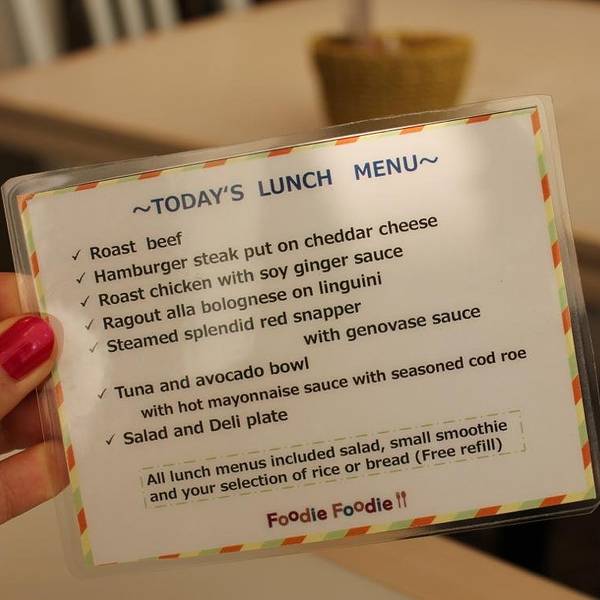 ~TODAY'S LUNCH MENU~
✓ Roast beef
✓ Hamburger steak put on cheddar cheese
✓ Roast chicken with soy ginger sauce
✓ Ragout alla bolognese on linguini
✓ Steamed splendid red snapper
with genovase sauce
✓ Tuna and avocado bowl
with hot mayonnaise sauce with seasoned cod roe
✓ Salad and Deli plate
All lunch menus included salad, small smoothie
and your selection of rice or bread (Free refill)
Foodie Foodie